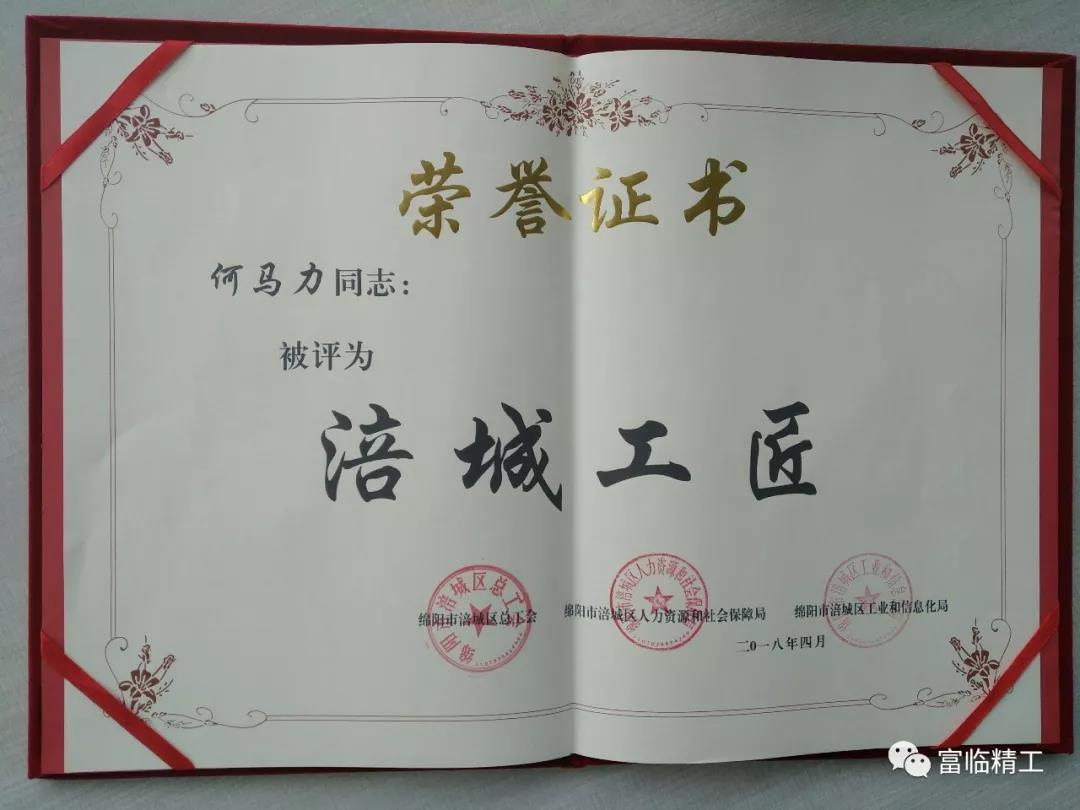 荣誉证书
何马力同志：
被评为
涪城工匠
绵阳市涪城区总工会 绵阳市涪城区人力资源和社会保障局 绵阳市涪城区工业和信息化局
二〇一八年四月
富临精工